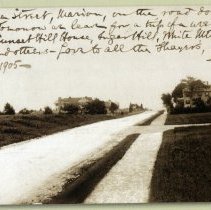 Street, Marion, on the road
as leave for a trip of a
Sunset Hill House, Sugar Hill, White Mt
Love to all the Thayers,
1905-